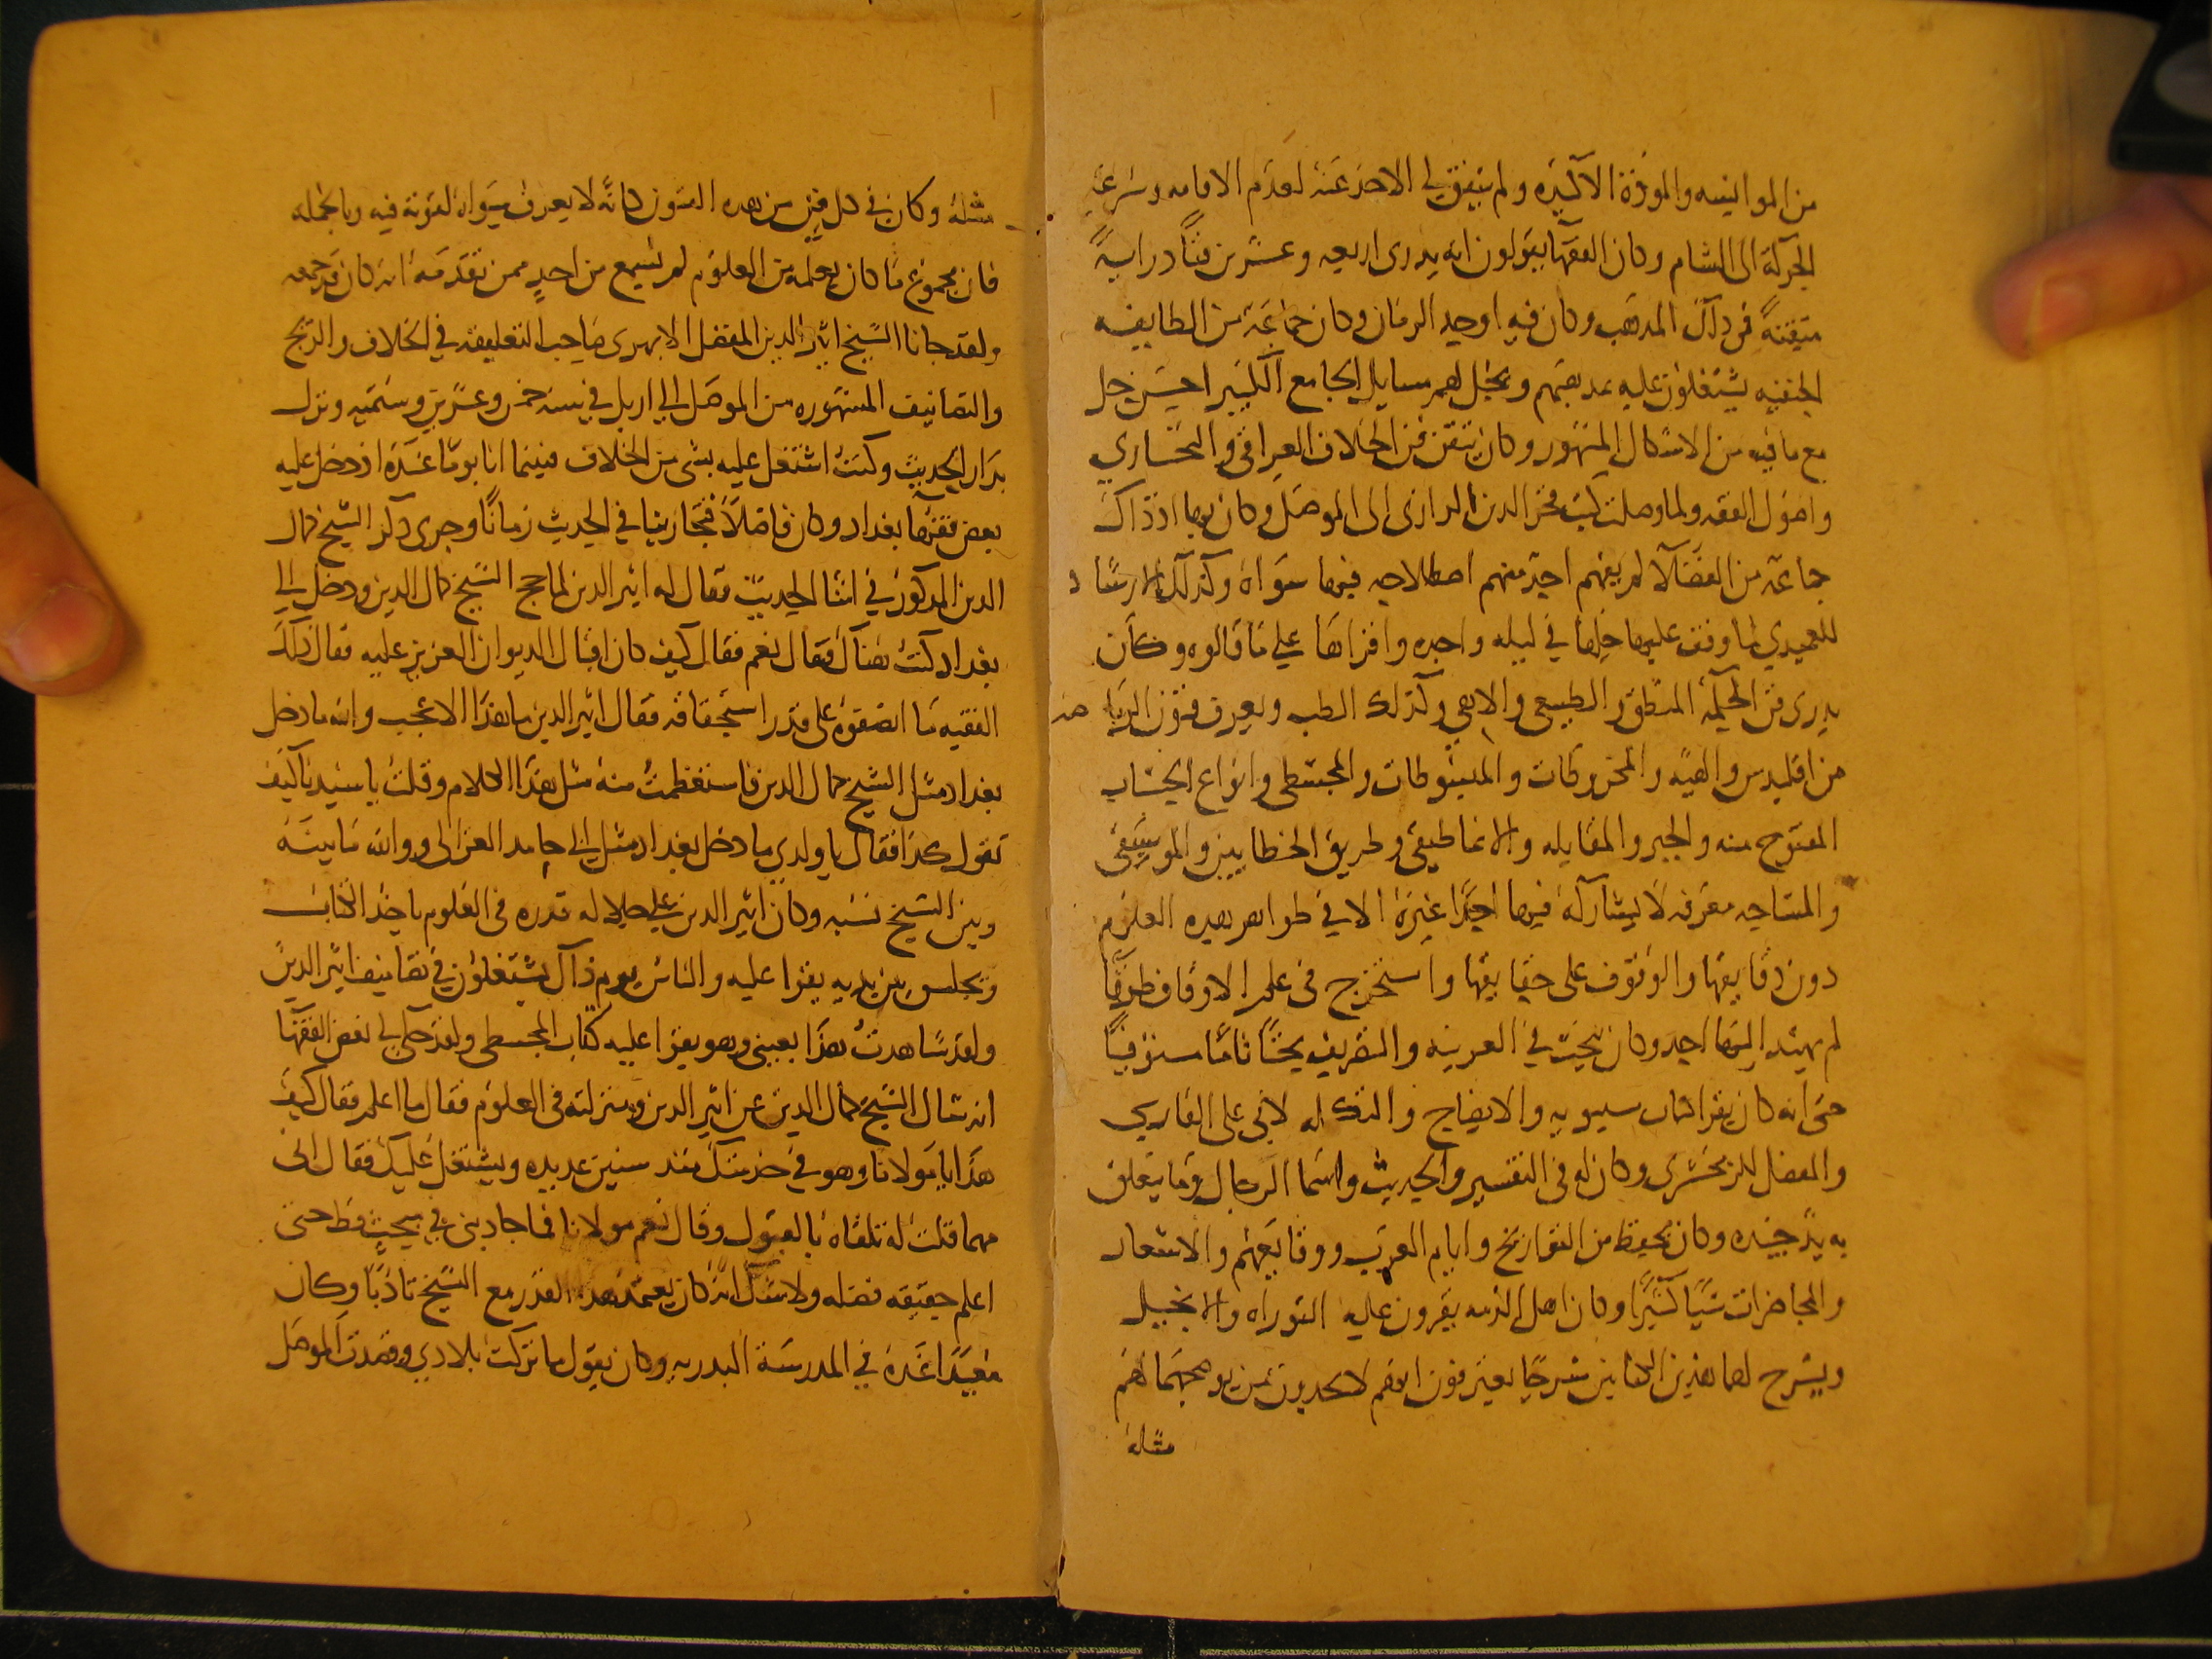 من الموانسه والمودة الاكيده ولم يتفق لي الاخذ عنه لعدم الاقامه وسرعة
الحركة الى الشام وكان الفقهآ يقولون انه يدرى اربعه وعشرين فنًّا درايةً
متقنةً فمن ذلك المذهب وكان فيه اوحد الزمان وكان جماعة من الطايفه
الحنفيه يشتغلون عليه بمذهبهم ويحل لهم مسايل الجامع الكبير احسن حل
مع ما فيه من الاشكال المشهور وكان يتقن فن الخلاف العراقى والبخاري
واصول الفقه ولما وصلت كتب فخر الدين الرازى الى الموصل وكان بها اذذاك
جماعة من الفضلآ لم يفهم احد منهم اصطلاحه فيها سواه وكذلك الارشاد
للعميدي لما وقف عليها حلها في ليله واحده واقراها على ما قالوه وكان
يدرى فن الحكمة المنطق والطبيعى والالهي وكذلك الطب ويعرف فنون الرياضه
من اقليدس والهيه والمخروطات والمتوسطات والمجسطى وانواع الحساب
المفتوح منه والجبر والمقابله والارثماطيقى وطريق الخطايين والموسيقى
والمساحه معرفه لا يشاركه فيها احدًا غيرهٔ الا في ظواهر هذه العلوم
دون دقايقها والوقوف على حقايقها واستخرج فى علم الاوفاق طرقًا
لم يهتد اليها احد وكان يبحث في العربيه والتصريف بحثًا تامًا مستوفيًا
حتى انه كان يقرا كتاب سيبويه والايضاح والتكمله لابى على الفارسي
والمفصل للزمخشرى وكان له فى التفسير والحديث واسما الرجال وما يتعلق
به يدٌ جيده وكان يحفظ من التواريخ وايام العرب ووقايعهم والاشعار
والمحاضرات شيًا كثيرًا وكان اهل الذمه يقرون عليه التوراه والانجيل
ويشرح لهما هذين الكتابين شرحًا يعترفون انهم لا يجدون من يوضحهما لهم
مثله
مثله وكان في كل فن من هذه الفنون كانه لا يعرف سواه لقوته فيه وبالجمله
فان مجموع ما كان يعلمه من العلوم لم نسمع من احدٍ ممن تقدمه انه كان قد جمعه
ولقد جانا الشيخ اثير الدين المفضل الابهرى صاحب التعليقه في الخلاف والزيج
والتصانيف المشهوره من الموصل الى اربل في سنه خمس وعشرين وستميه ونزل
بدار الحديث وكنت اشتغل عليه بشى من الخلاف فبينما انا يومًا عنده اذ دخل عليه
بعض فقهآ بغداد وكان فاضلًا فتجارينا في الحديث زمانًا وجرى ذكر الشيخ كمال
الدين المذكور في اثنا الحديث فقال له اثير الدين لما حج الشيخ كمال الدين ودخل الى
بغداد كنت هناك فقال نعم فقال كيف كان اقبال الديوان العزيز عليه فقال ذلك
الفقيه ما انصفوه على قدر استحقاقه فقال اثير الدين ما هذا الا عجب والله ما دخل
بغداد مثل الشيخ كمال الدين فاستعظمت منه مثل هذا الكلام وقلت يا سيدنا كيف
تقول كذا فقال يا ولدي ما دخل بغداد مثل ابي حامد الغزالى ووالله ما بينه
وبين الشيخ نسبه وكان اثير الدين على جلاله قدره فى العلوم ياخذ الكتاب
ويجلس بين يديه يقرا عليه والناس يوم ذاك يشتغلون في تصانيف اثير الدين
ولقد شاهدت هذا بعينى وهو يقرا عليه كتاب المجسطى ولقد حكى لي بعض الفقهآ
انه سال الشيخ كمال الدين عن اثير الدين ومنزلته فى العلوم فقال ما اعلم فقال كيف
هذا يا مولانا وهو في خدمتك منذ سنين عديده ويشتغل عليك فقال لانى
مهما قلت له تلقاه بالقبول وقال نعم مولانا فما جاذبنى في مبحث قط حتى
اعلم حقيقه فضله ولا شك انه كان يعتمد هذا القدر مع الشيخ تادبًا وكان
معيدًا عنده في المدرسة البدريه وكان يقول ما تركت بلادي وقصدت الموصل